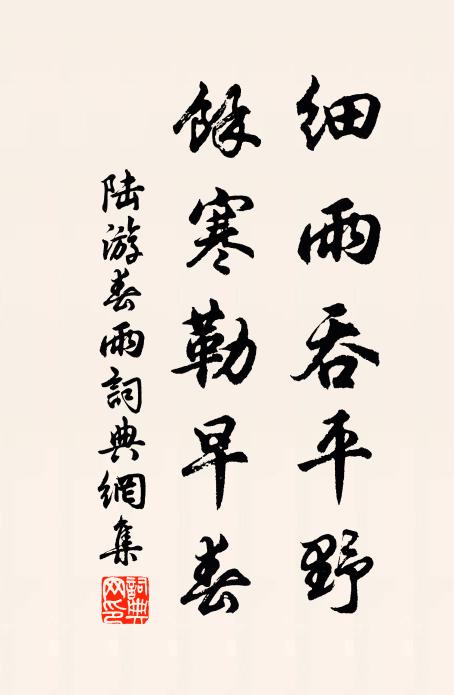 细雨吞平野
馀寒勒早春
陆游春雨詞典網集
詞典网印